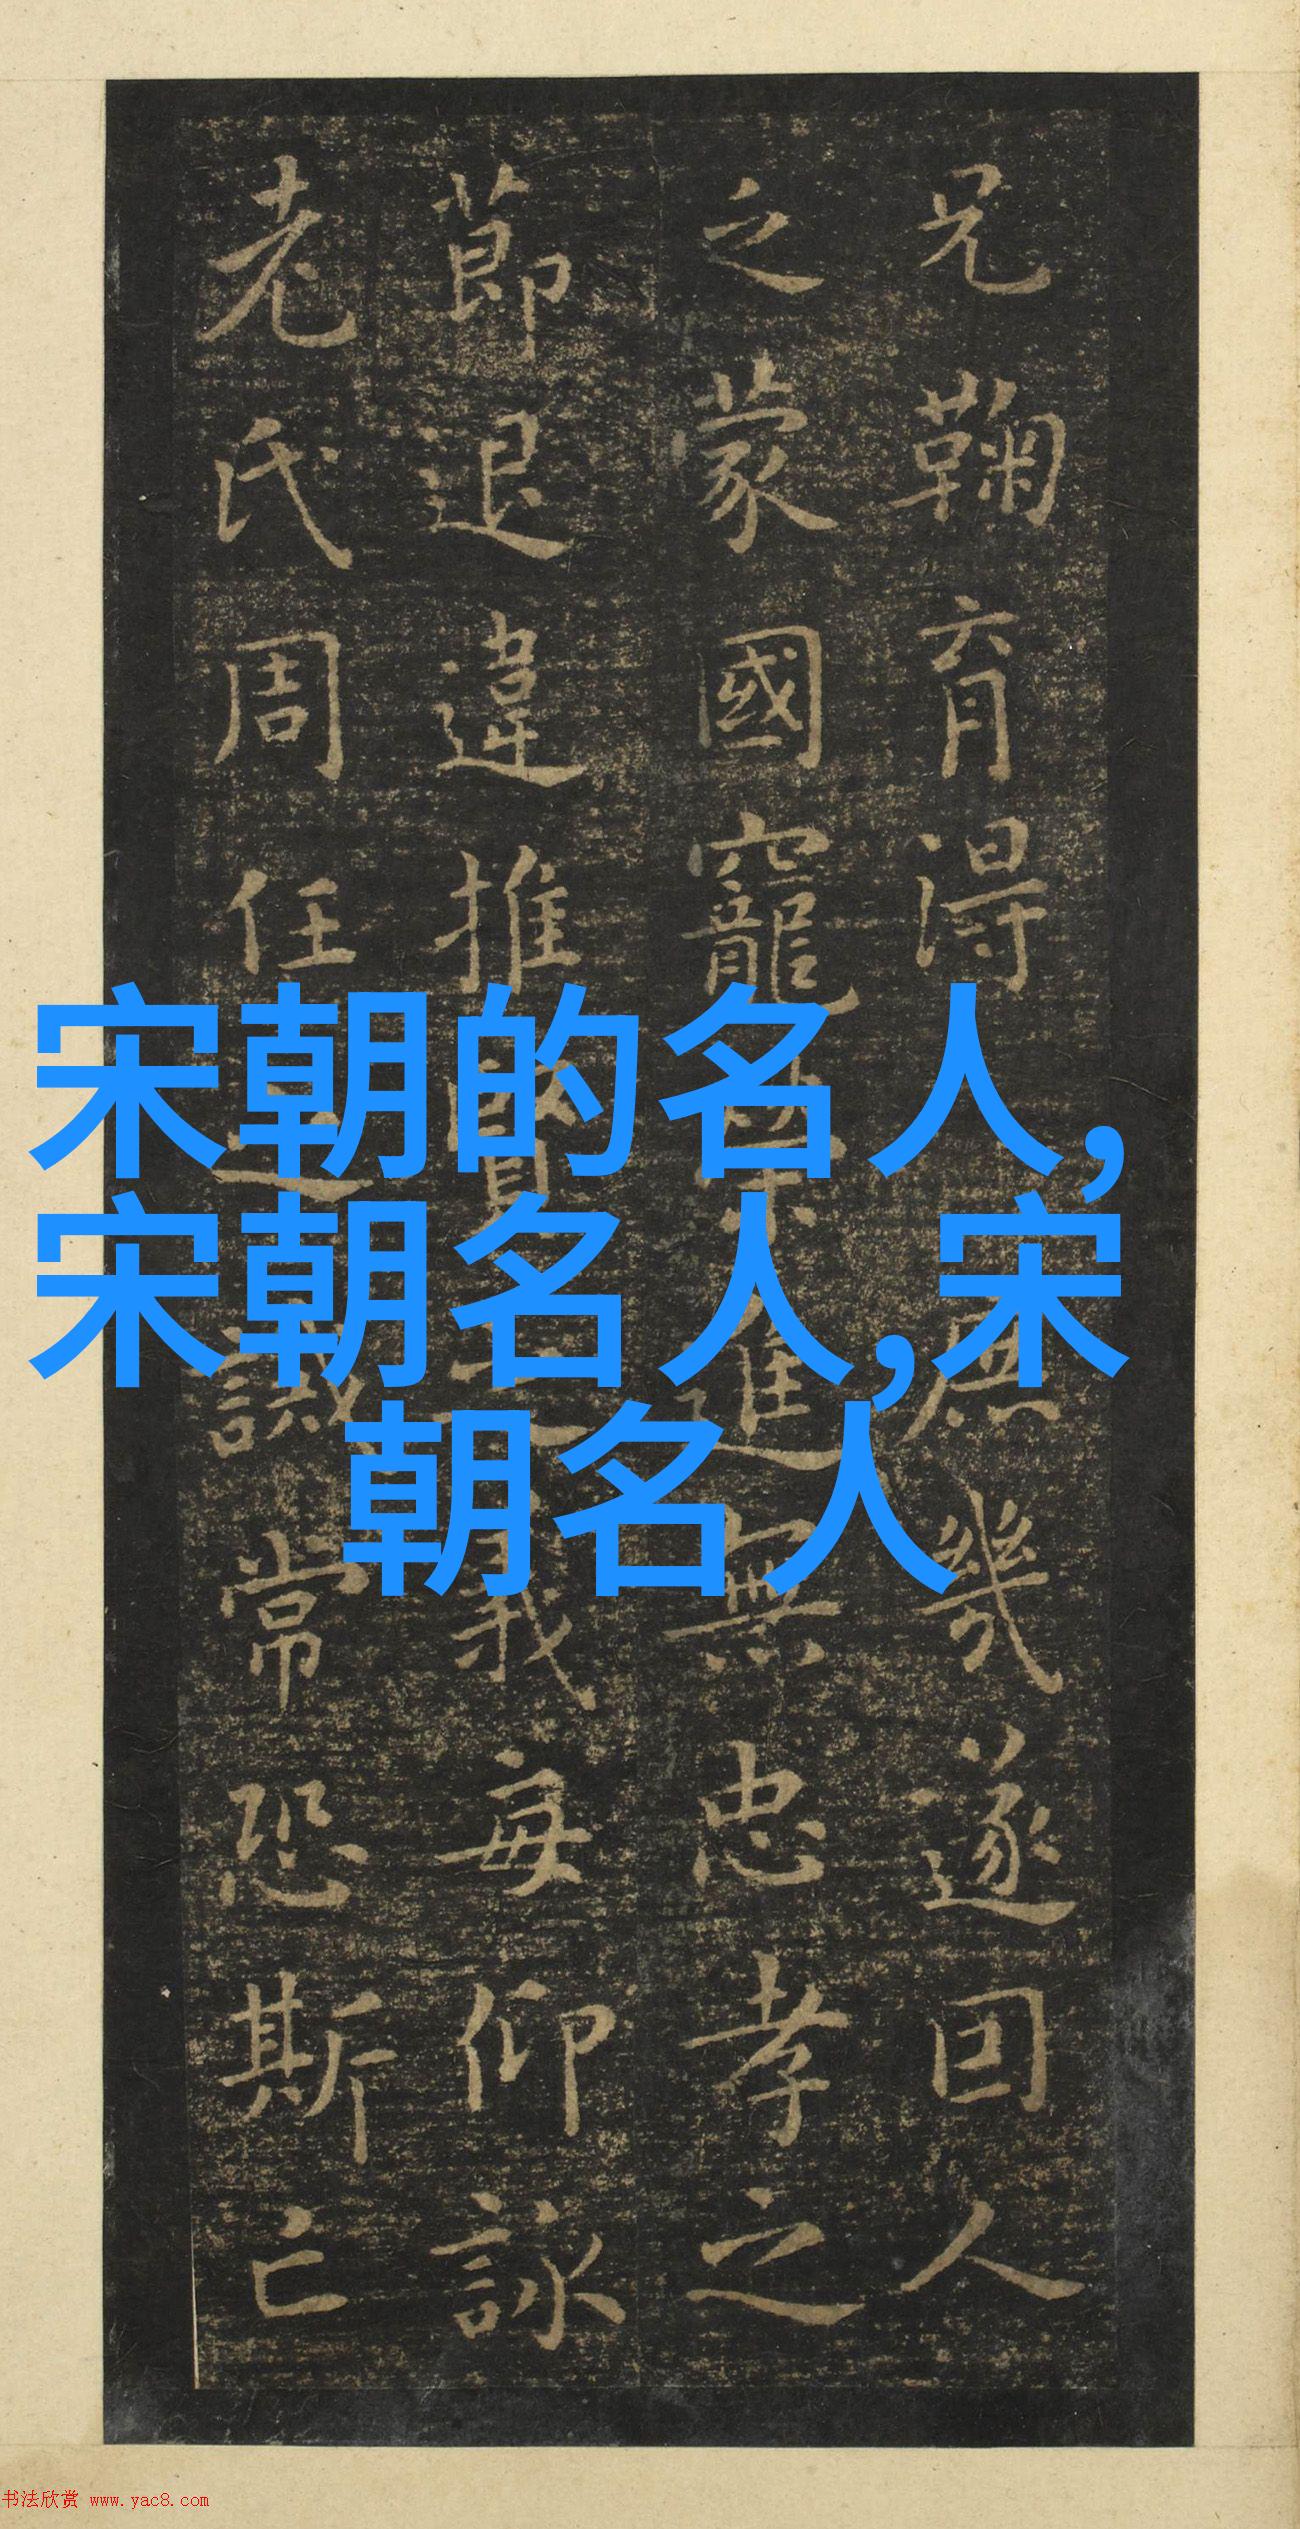 兄鞠育得庶幾遂囙人
之蒙國寵進無忠孝之
莭退違推賢義每仰詠
老氏周任之誡常恐斯亡
宋朝的名人,
宋朝名人,宋
朝名人
书法欣赏 www.yac8.com